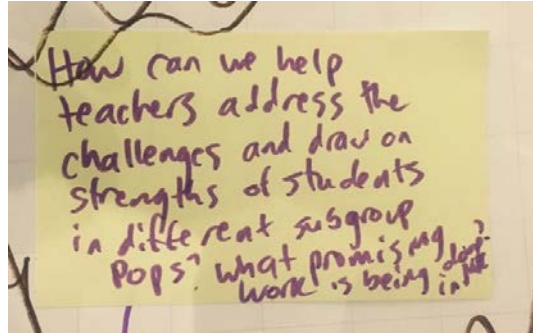 How can we help
teachers address the
challenges and draw on
strengths of students
in different subgroup
pops? what promising
work is being done
in